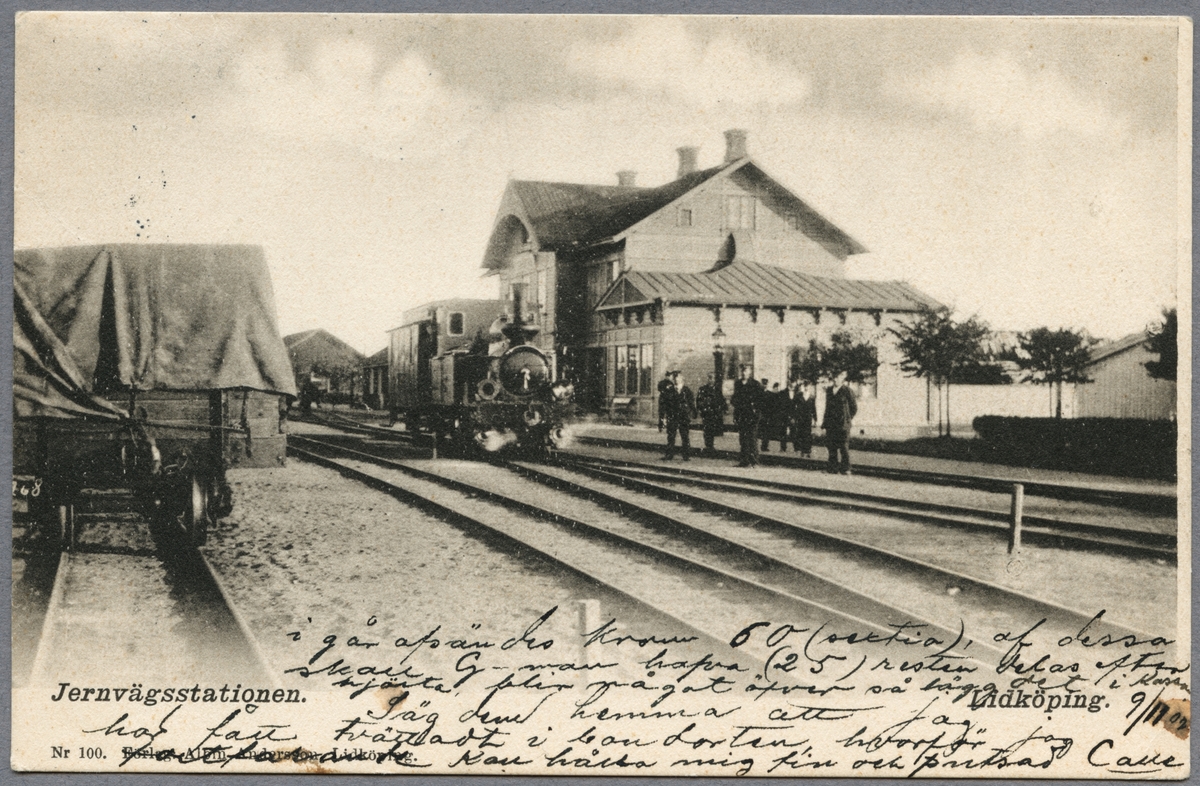 168
i går afsändes kronor 60 (sextio), af dessa
skall G-man hafva (25) resten delas efter
hjärta, blir något öfver så lägg det i kassan
Jernvägsstationen.
Lidköping.
9/11 02
Säg dem hemma att jag
har fått tvättadt i landsorten, hvarför jag
kan hålla mig fin och putsad Calle
Nr 100. Förlag, Albin Andersson, Lidköping.